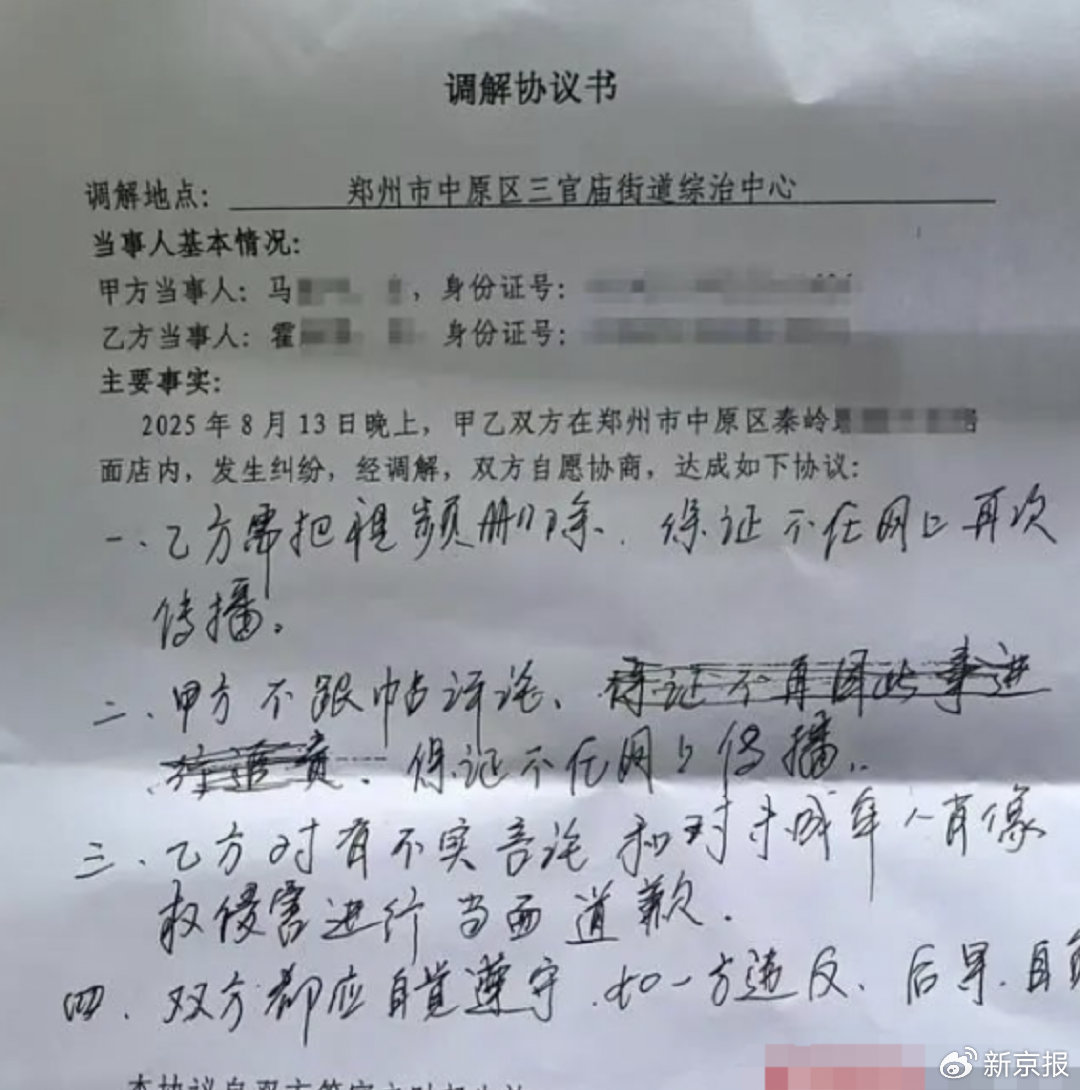 调解协议书
调解地点： 郑州市中原区三官庙街道综治中心
当事人基本情况：
甲方当事人：马 ，身份证号：
乙方当事人：霍 身份证号：
主要事实：
2025年8月13日晚上，甲乙双方在郑州市中原区秦岭
面店内，发生纠纷，经调解，双方自愿协商，达成如下协议：
一、乙方需把视频删除、保证不在网上再次
传播。
二、甲方不跟帖评论、保证不再因此事进
行追责、保证不在网上传播.
三、乙方对有不实言论和对未成年人肖像
权侵害进行当面道歉.
四、双方都应自觉遵守.如一方违反、后果.自负
本协议自双方签字之时起生效
新京报